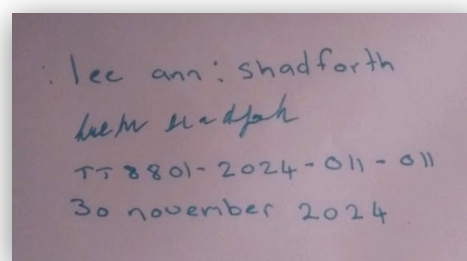 : lee ann : shadforth
TT8801-2024-011-011
30 november 2024